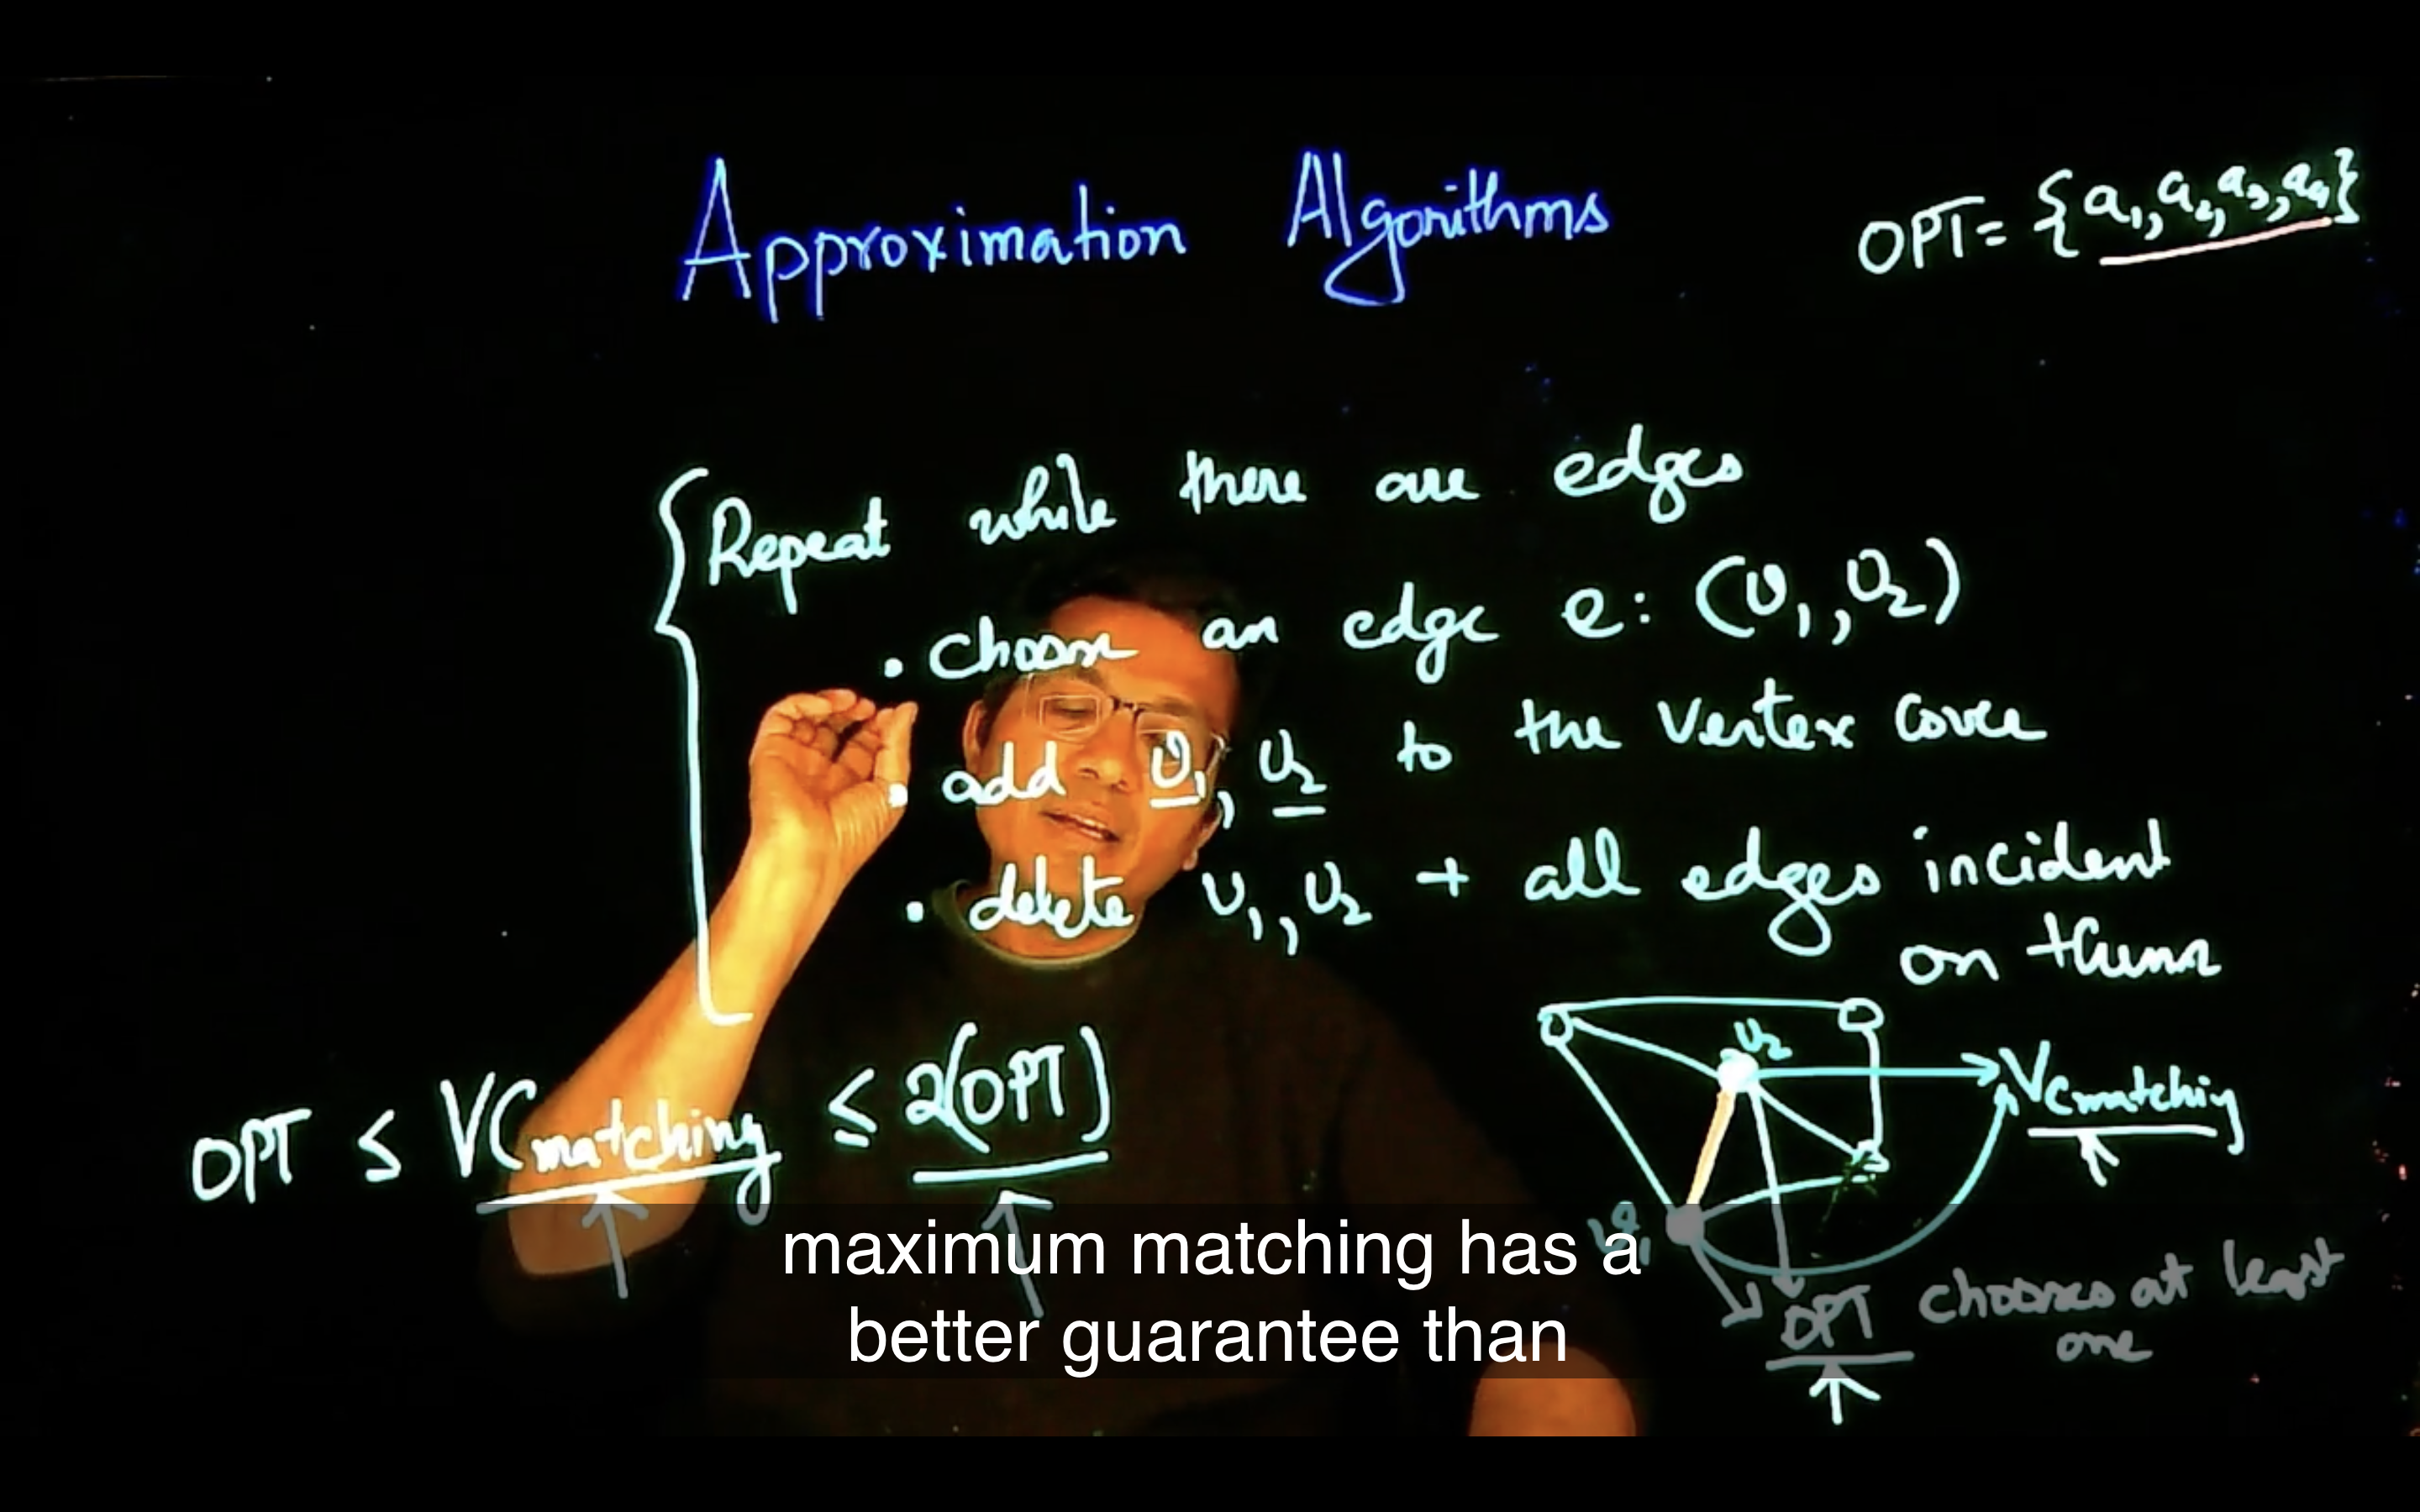 Approximation Algorithms
OPT = {a₁, a₂, a₃, a₄}
Repeat while there are edges
• choose an edge e: (v₁, v₂)
• add v₁, v₂ to the vertex cover
• delete v₁, v₂ + all edges incident
on them
OPT ≤ VCmatching ≤ 2(OPT)
v₂
VCmatching
v₁
OPT chooses at least
one
maximum matching has a
better guarantee than